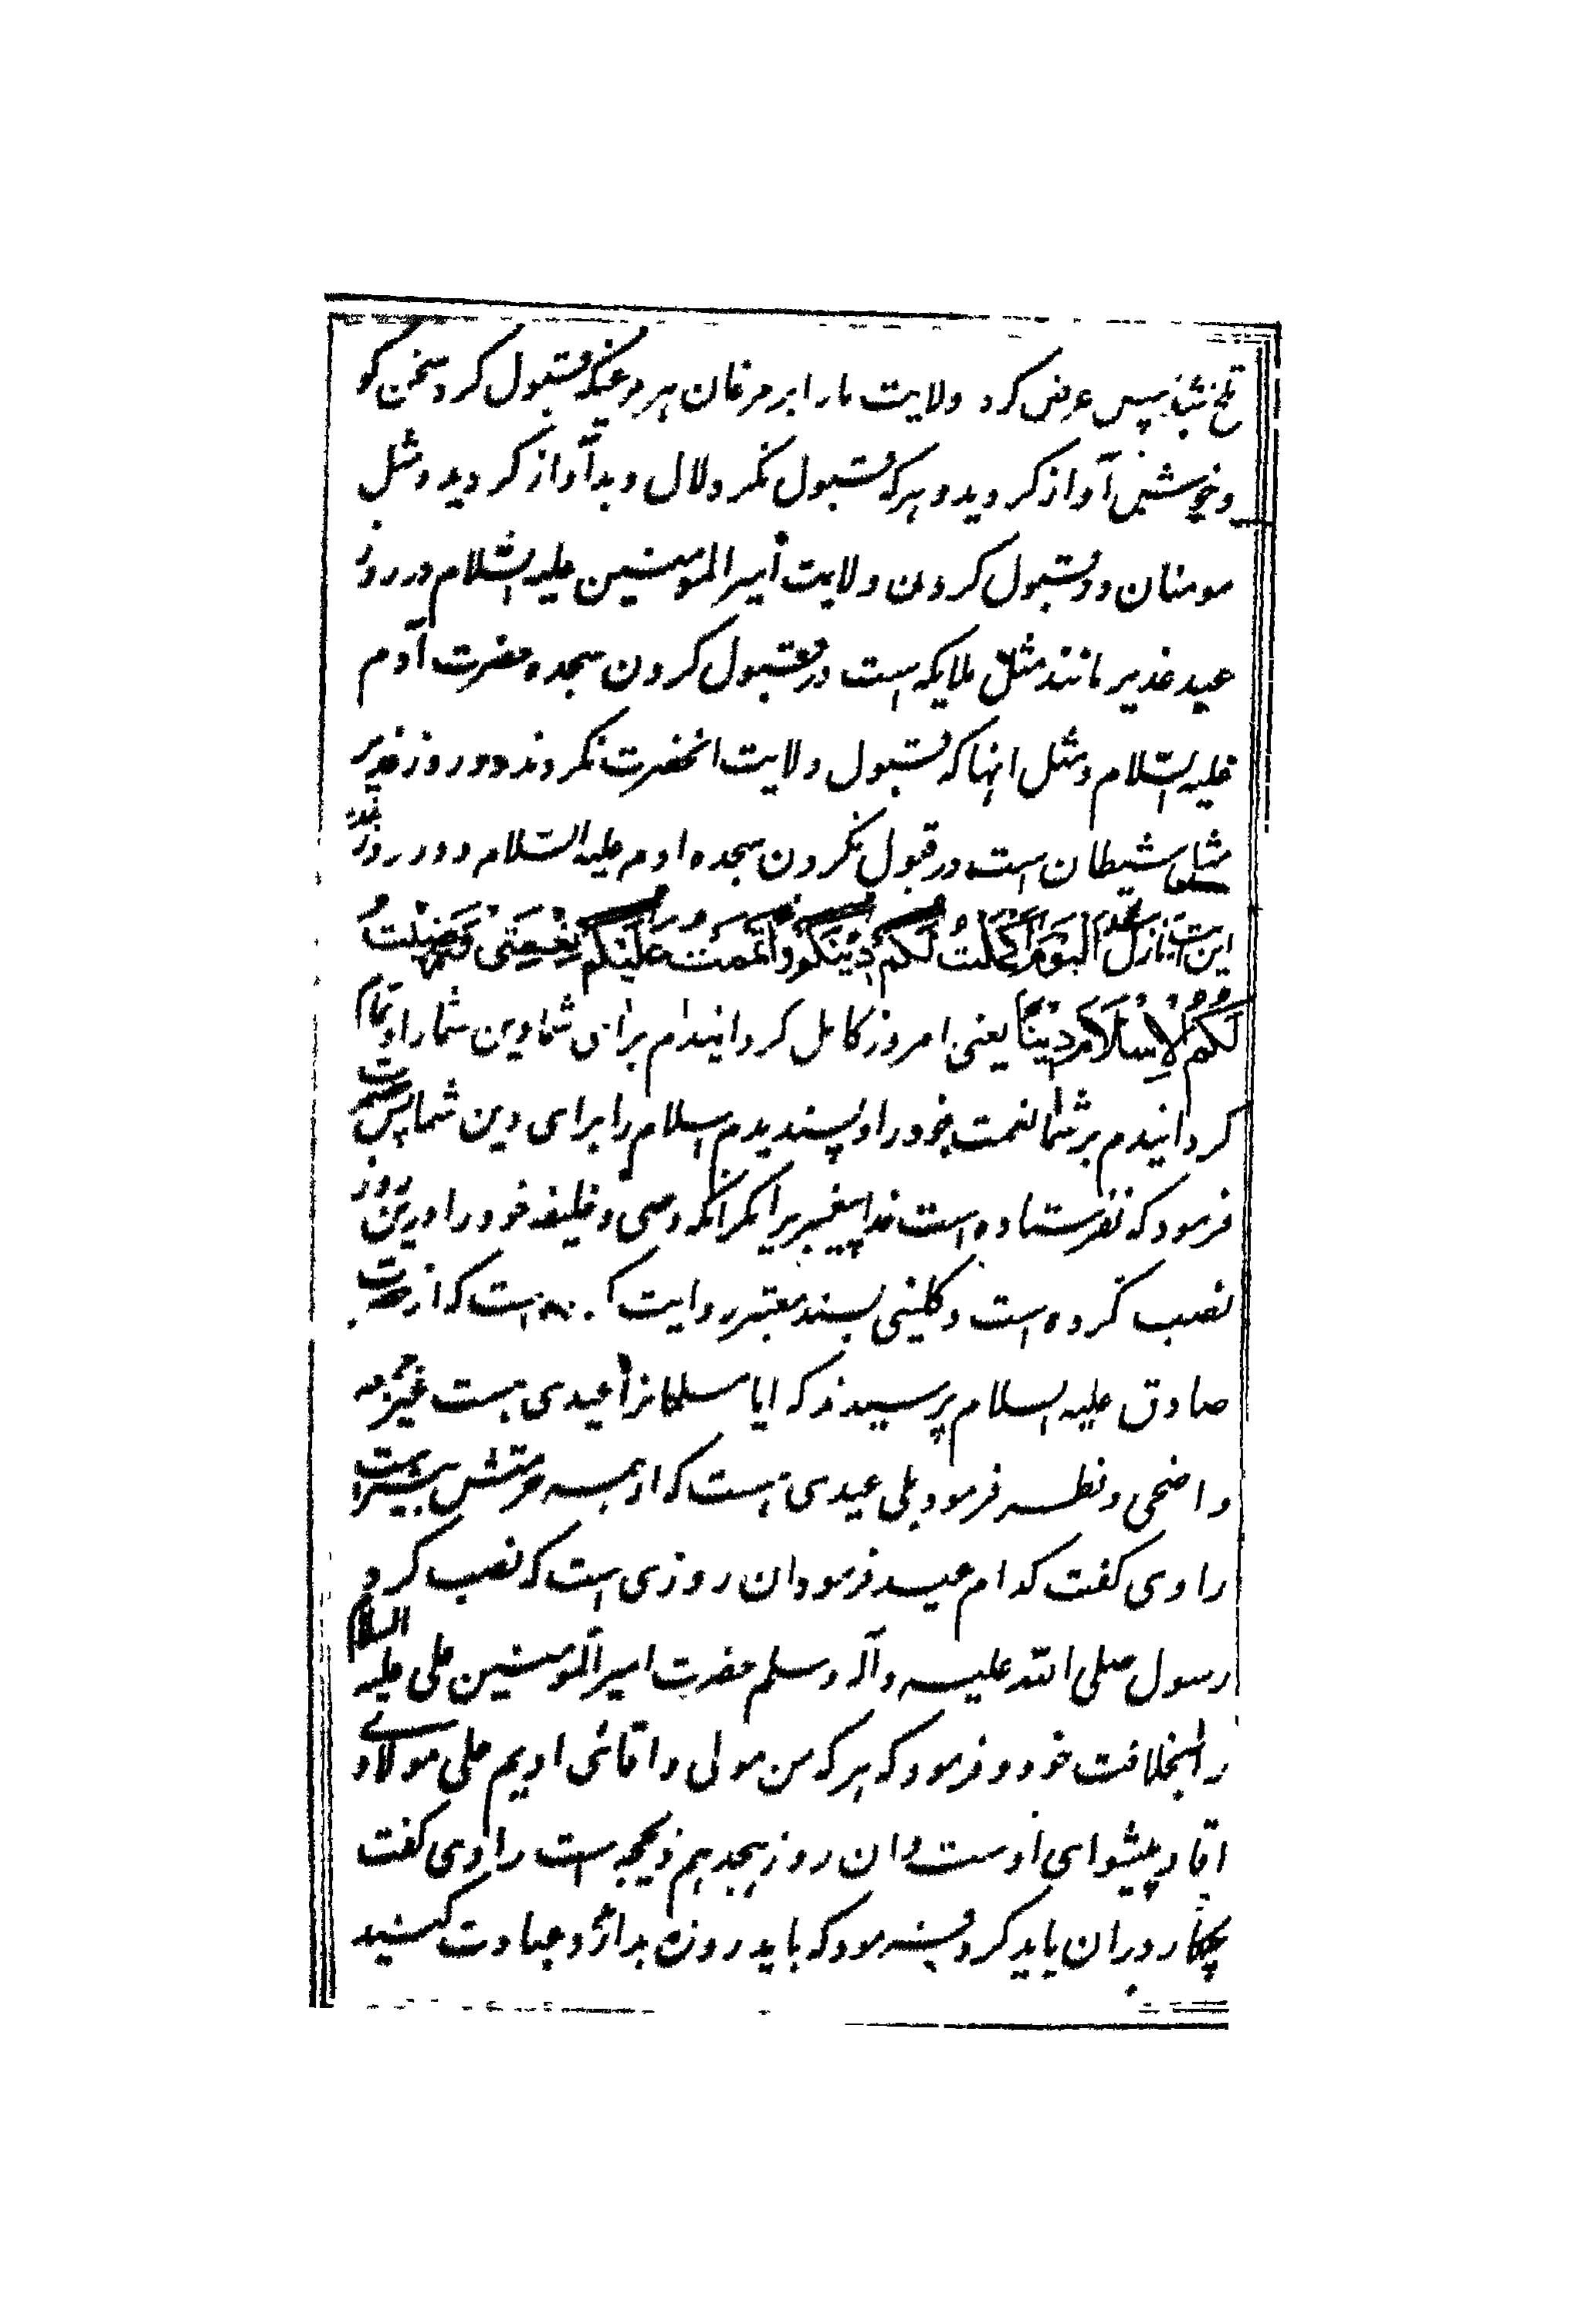 تلخ شد پس عرض کرد ولایت ما را بر مرغان هر مرغیکه قبول کرد سخن کو
و خوش آواز کردید و هرکه قبول نکرد لال و بدآواز کردید و مثل
مومنان در قبول کردن ولایت امیر المؤمنین علیه السّلام در روز
عید غدیر مانند مثل ملایکه است در قبول کردن سجده حضرت آدم
علیه السّلام و مثل انها که قبول ولایت انحضرت نکردند در روز غدیر
مثل شیطان است در قبول نکردن سجده ادم علیه السّلام و در روز غدیر
این آیت نازل شد اَلْیَوْمَ اَکْمَلْتُ لَکُمْ دِیْنَکُمْ وَاَتْمَمْتُ عَلَیْکُمْ نِعْمَتِیْ وَرَضِیْتُ
لَکُمُ الْاِسْلَامَ دِیْنًا یعنی امروز کامل کردانیدم برای شما دین شما را و تمام
کردانیدم بر شما نعمت خود را و پسندیدم اسلام را برای دین شما پس حضرت
فرمود که نفرستاده است خدا پیغمبریرا مکر انکه وصی و خلیفه خود را درین روز
نصب کرده است و کلینی بسند معتبر روایت است که از حضرت
صادق علیه السلام پرسیدند که ایا مسلمانرا عیدی هست غیر جمعه
و اضحی و فطر فرمود بلی عیدی هست که از همه حرمتش بیشتر است
راوی کفت کدام عید فرمود ان روزی است که نصب کرد
رسول صلی الله علیه وآله وسلم حضرت امیر المؤمنین علی علیه السلام
را بخلافت خود و فرمود که هرکه من مولی و اقائی اویم علی مولای و
اقا و پیشوای اوست و ان روز هیجدهم ذیحجه است راوی کفت
چکار دران باید کرد فرمود که باید روزه بدارید و عبادت کنید